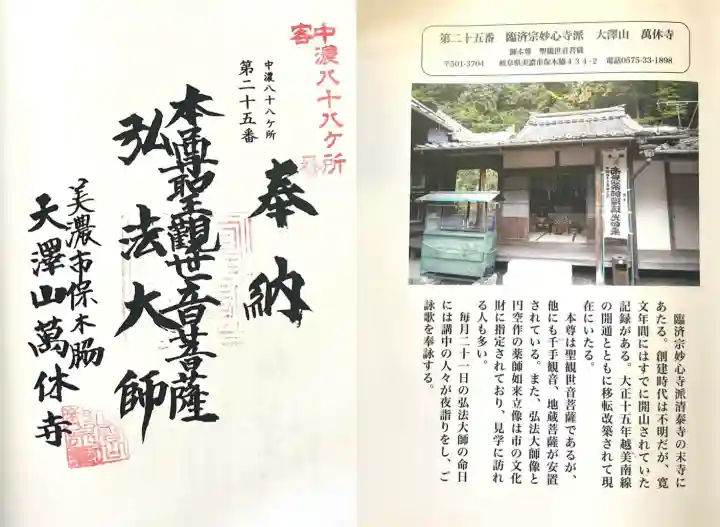 中濃八十八ケ所
客番
中濃八十八ケ所
第二十五番
奉納
本尊聖觀世音菩薩
弘法大師
美濃市保木脇
天澤山萬休寺
第二十五番　臨済宗妙心寺派　大澤山　萬休寺
御本尊　聖観世音菩薩
〒501-3704　岐阜県美濃市保木脇434-2　電話0575-33-1898
臨済宗妙心寺派清泰寺の末寺に
あたる。創建時代は不明だが、寛
文年間にはすでに開山されていた
記録がある。大正十五年越美南線
の開通とともに移転改築されて現
在にいたる。
本尊は聖観世音菩薩であるが、
他にも千手観音、地蔵菩薩が安置
されている。また、弘法大師像と
円空作の薬師如来立像は市の文化
財に指定されており、見学に訪れ
る人も多い。
毎月二十一日の弘法大師の命日
には講中の人々が夜詣りをし、ご
詠歌を奉詠する。